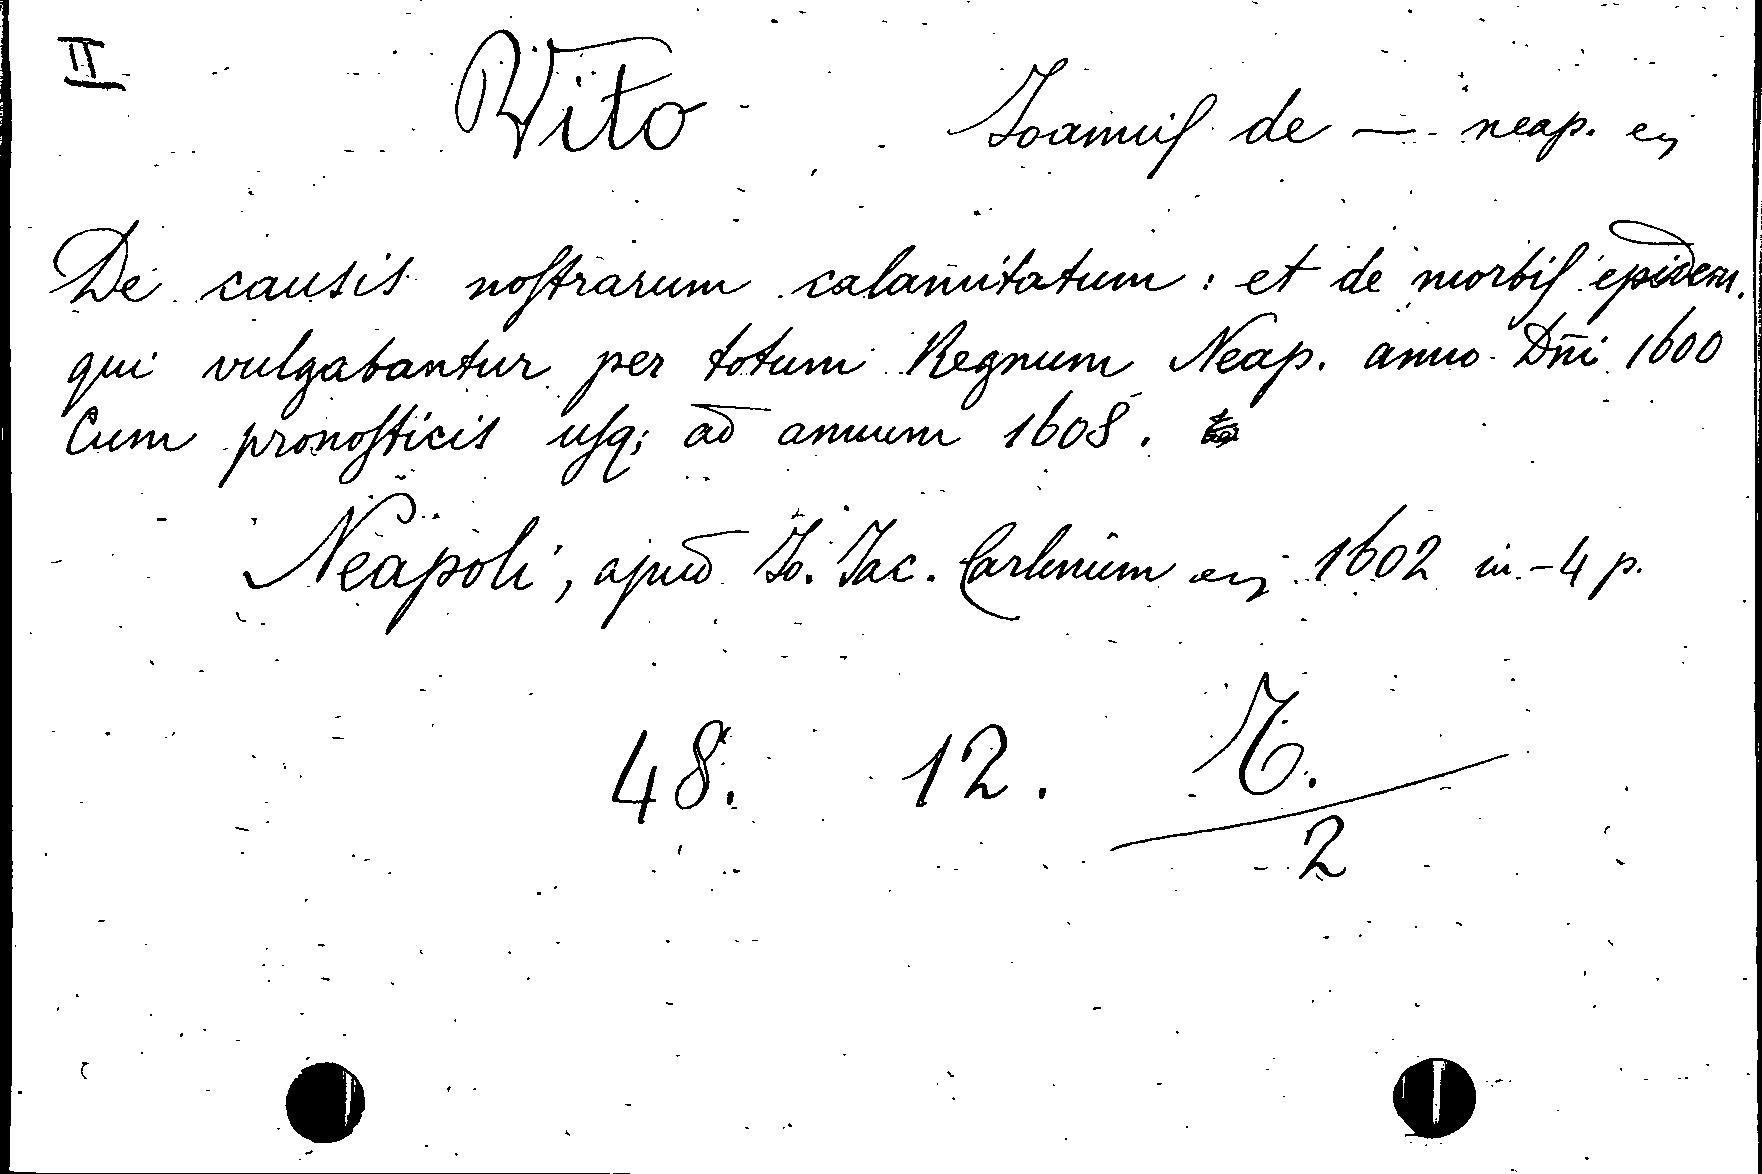 II Vito Ioannis de — neap. ej
De causis nostrarum calamitatum : et de morbis epidem.
qui vulgabantur per totum Regnum Neap. anno Dñi 1600
Cum pronosticis usq; ad annum 1608.
Neapoli, apud Io. Iac. Carlinum ej 1602 in-4 p.
48. 12. T.
2